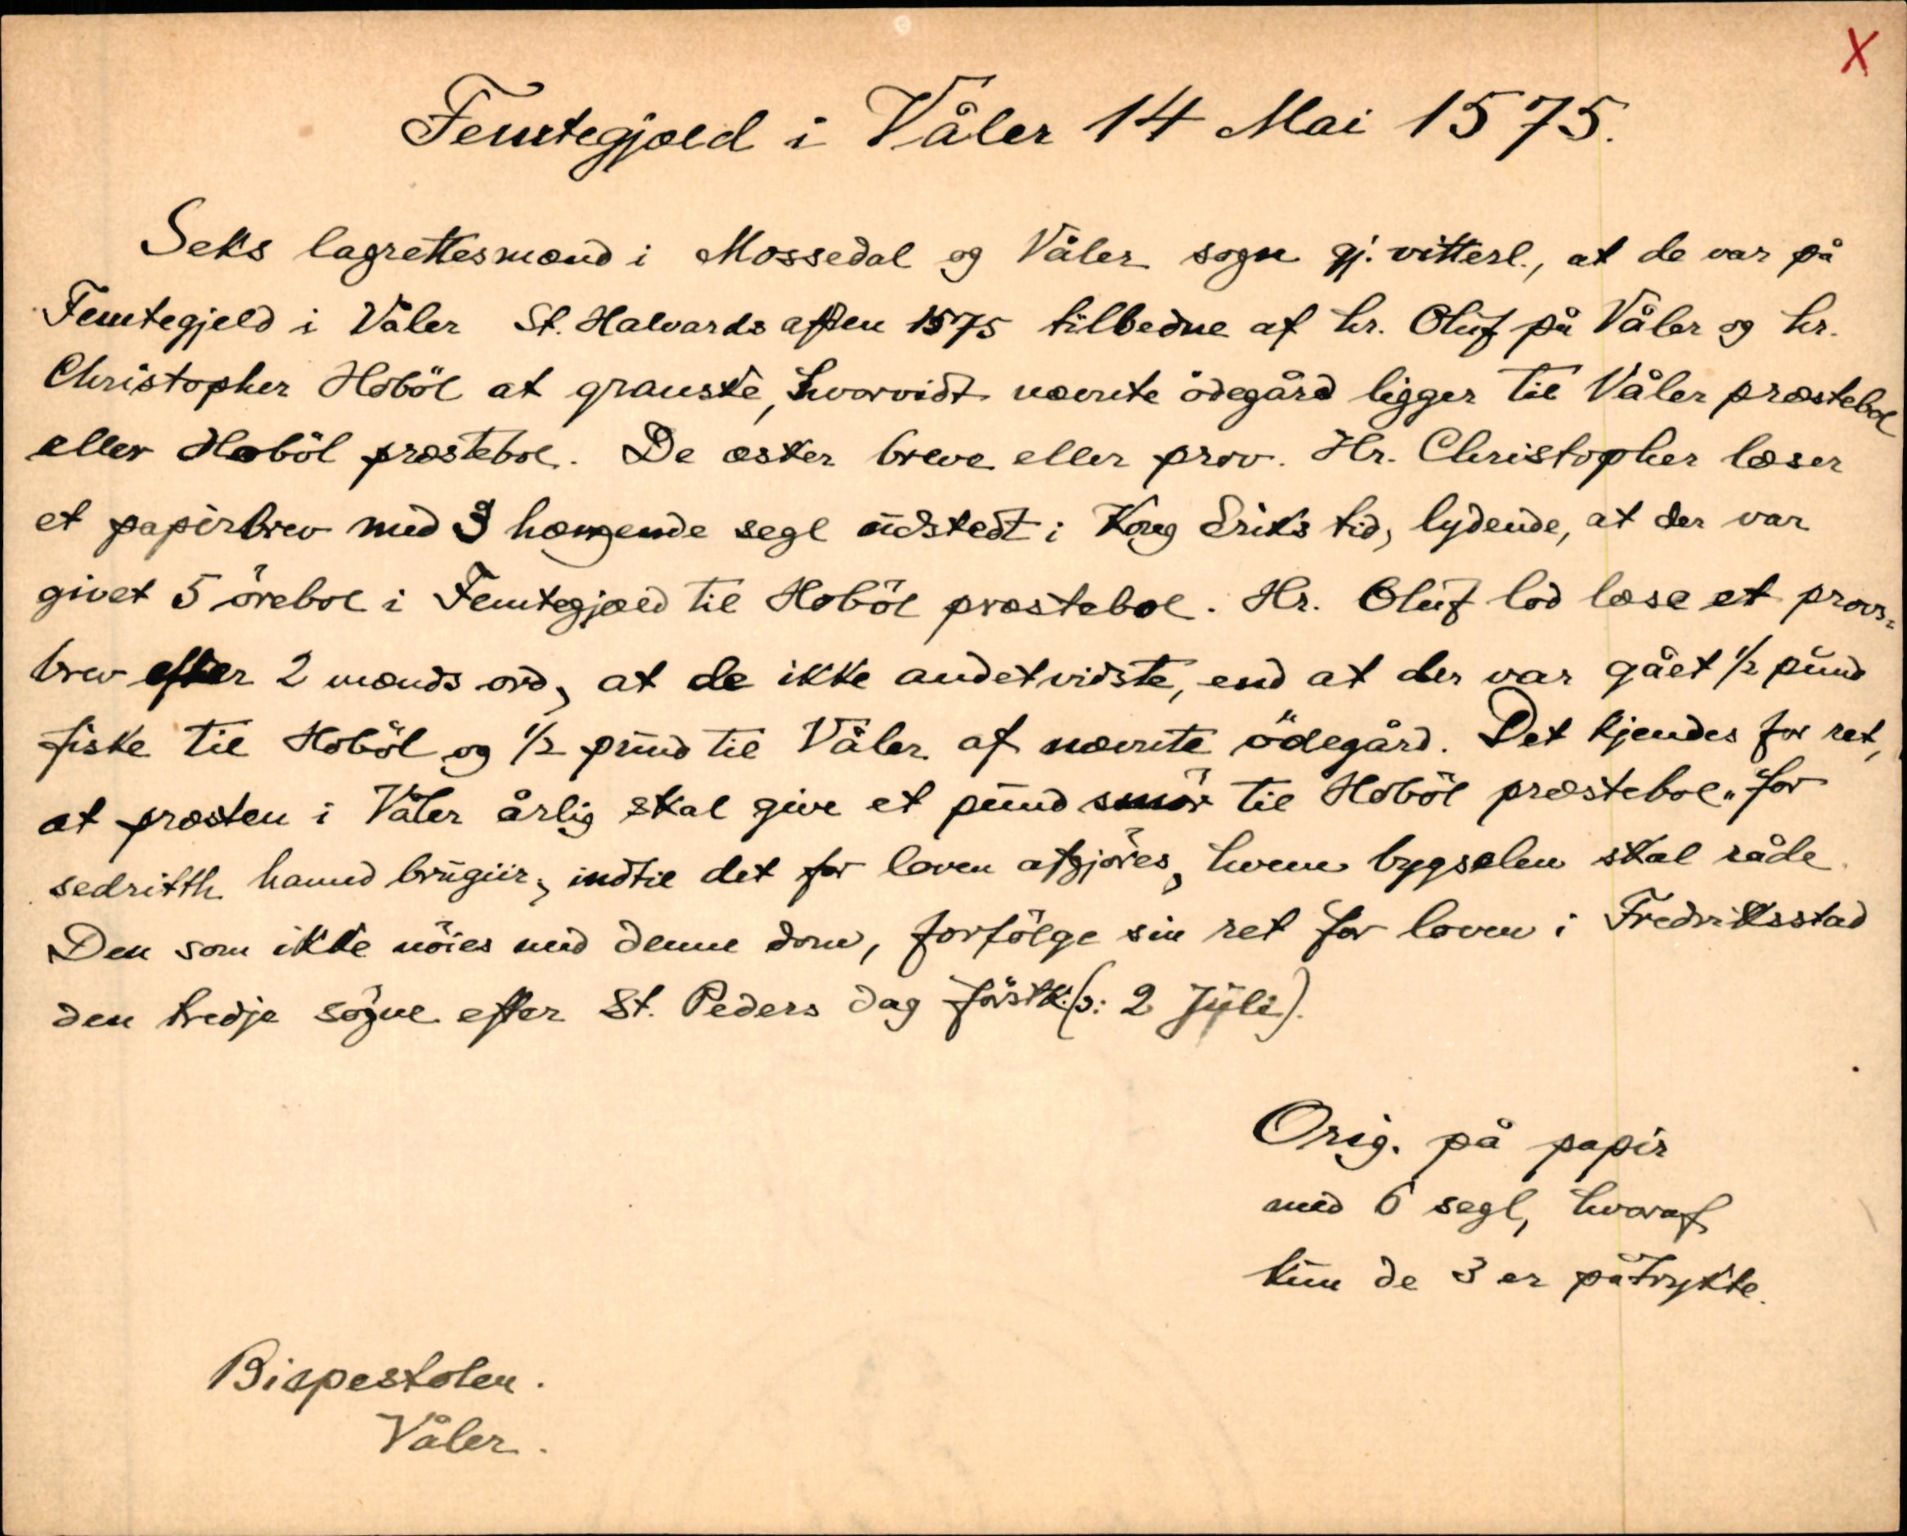 X
Femtegjæld i Våler 14 Mai 1575.
Seks lagrettesmænd i Mossedal og Våler sogn gj. vitterl., at de var på
Femtegjeld i Våler St. Halvards aften 1575 tilbedne af hr. Oluf på Våler og hr.
Christopher Hoböl at granske, hvorvidt nævnte ödegård ligger til Våler præstebol
eller Hoböl præstebol. De æsker breve eller prov. Hr. Christopher læser
et papirbrev med 3 hængende segl udstedt i Kong Eriks tid, lydende, at der var
givet 5 örebol i Femtegjæld til Hoböl præstebol. Hr. Oluf lod læse et provs-
brev efter 2 mænds ord, at de ikke andet vidste, end at der var gået 1/2 pund
fiske til Hoböl og 1/2 pund til Våler af nævnte ödegård. Det kjendes for ret,
at præsten i Våler årlig skal give et pund smör til Hoböl præstebol „for
sedritth hannd brugiir", indtil det for loven afgjöres, hvem bygselen skal råde.
Den som ikke nöies med denne dom, forfölge sin ret for loven i Fredriksstad
den tredje sögne efter St. Peders dag förstk. (ɔ: 2 Juli).
Orig. på papir
med 6 segl, hvoraf
kun de 3 er påtrykte.
Bispestolen.
Våler.